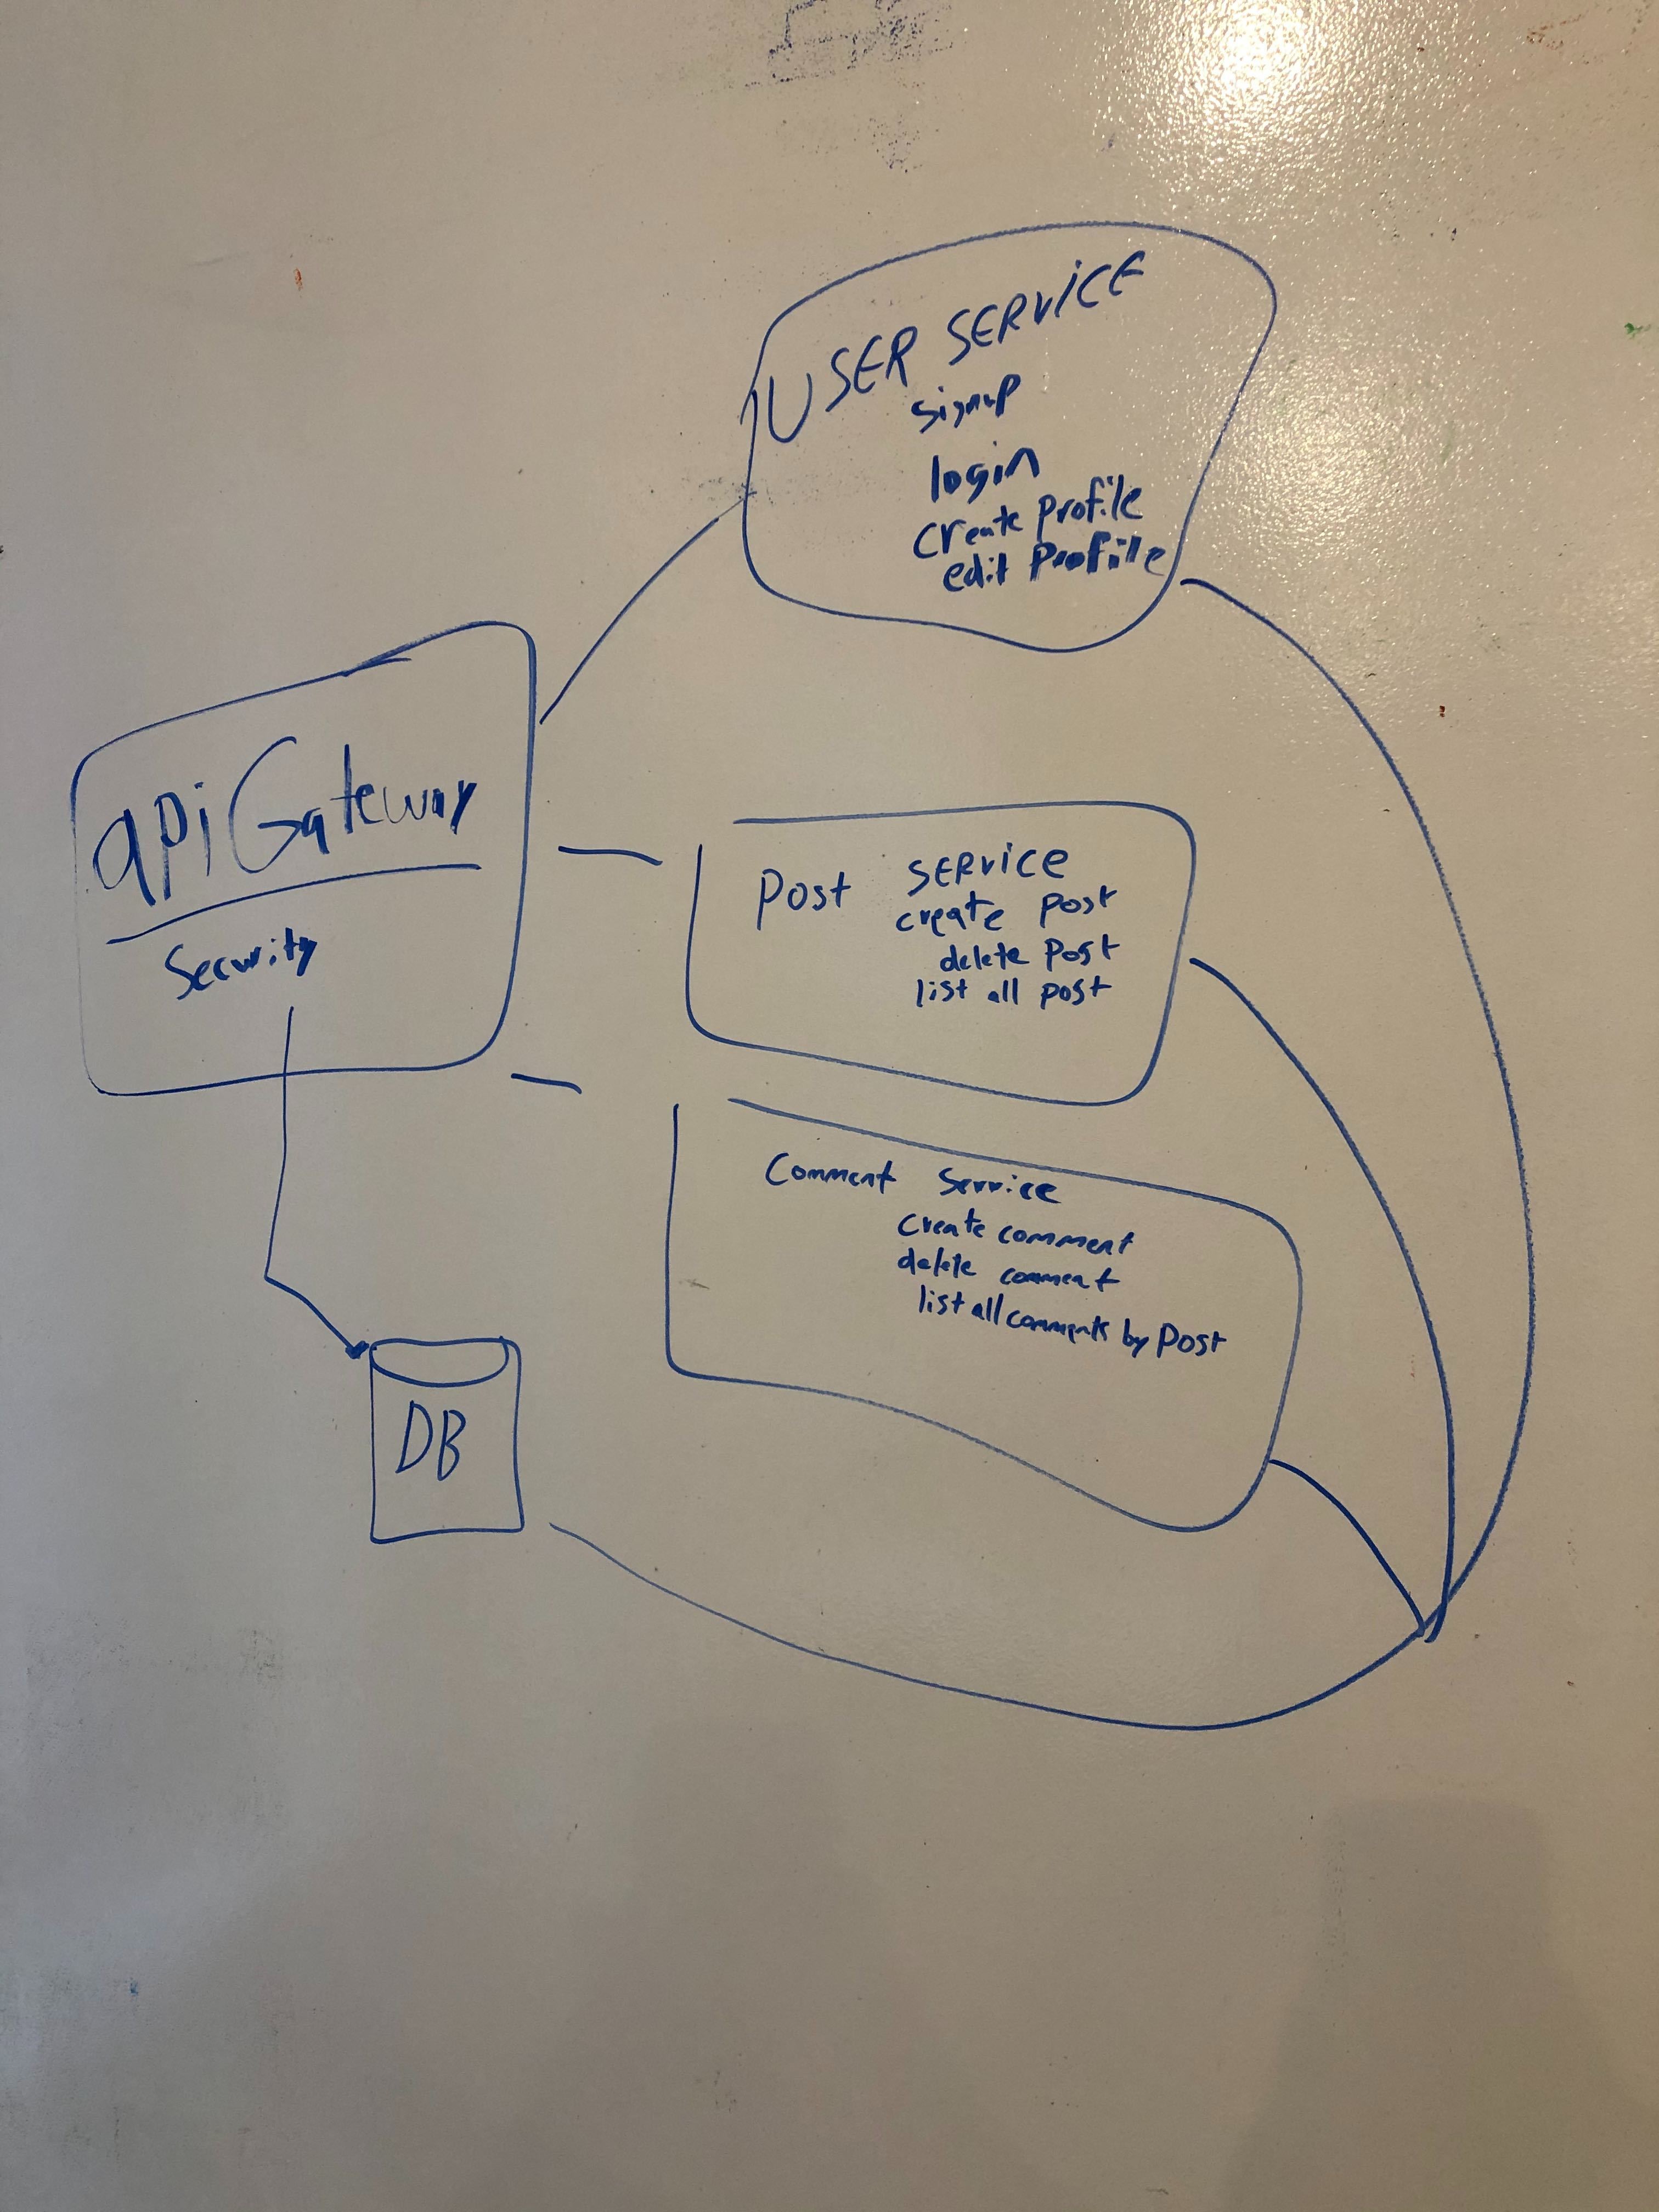 USER SERVICE
signup
login
create profile
edit profile
api Gateway
Security
Post SERVICE
create post
delete post
list all post
Comment Service
create comment
delete comment
list all comments by post
DB